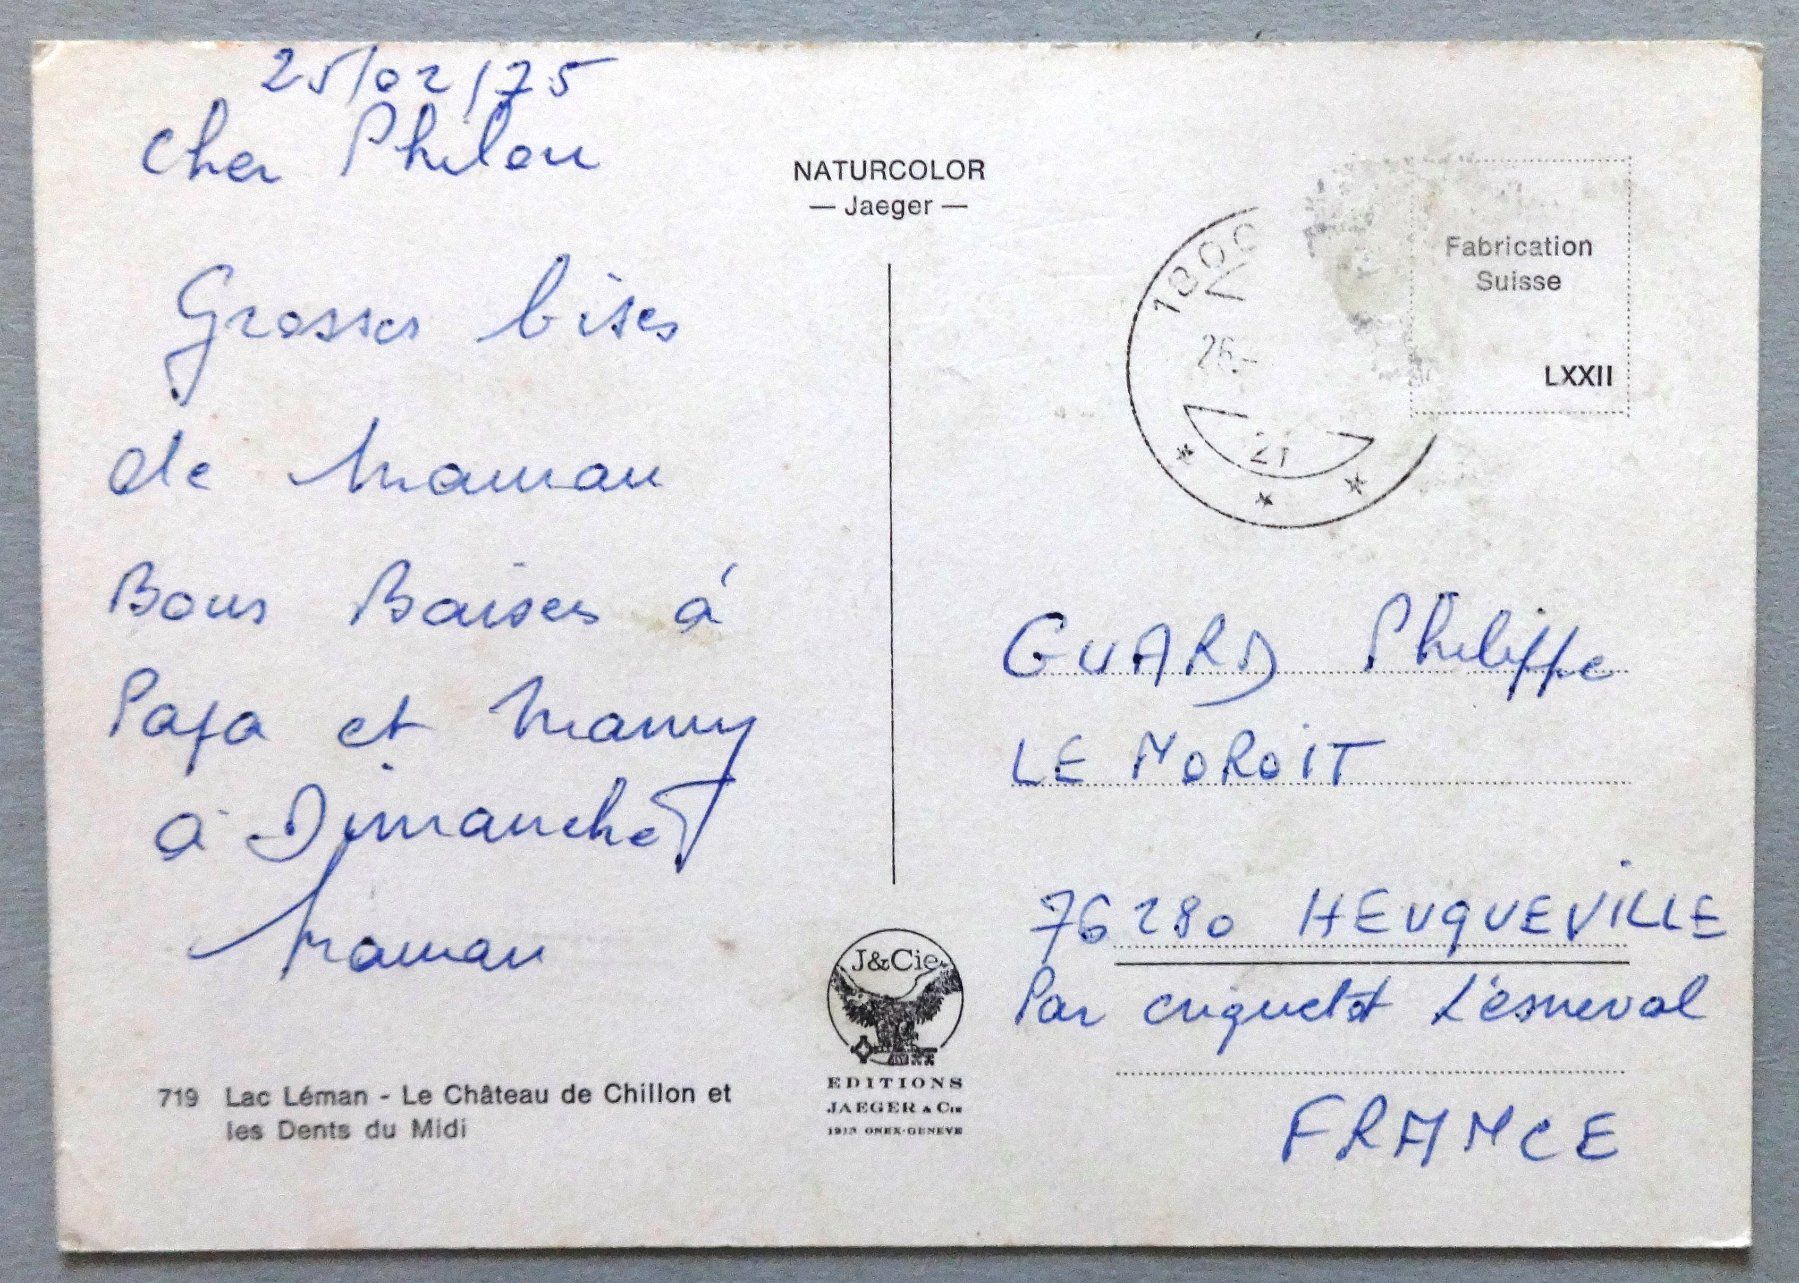 25/02/75
Cher Philou
Grosses bises
de Maman
Bons Baises à
Papa et Mamy
à Dimanche
Maman
719 Lac Léman - Le Château de Chillon et
les Dents du Midi
NATURCOLOR
— Jaeger —
J&Cie
EDITIONS
JAEGER & Cie
1213 ONEX-GENEVE
1800
26.-
21
Fabrication
Suisse
LXXII
GUARD Philippe
LE NOROIT
76280 HEUQUEVILLE
Par criquetot L'esneval
FRANCE